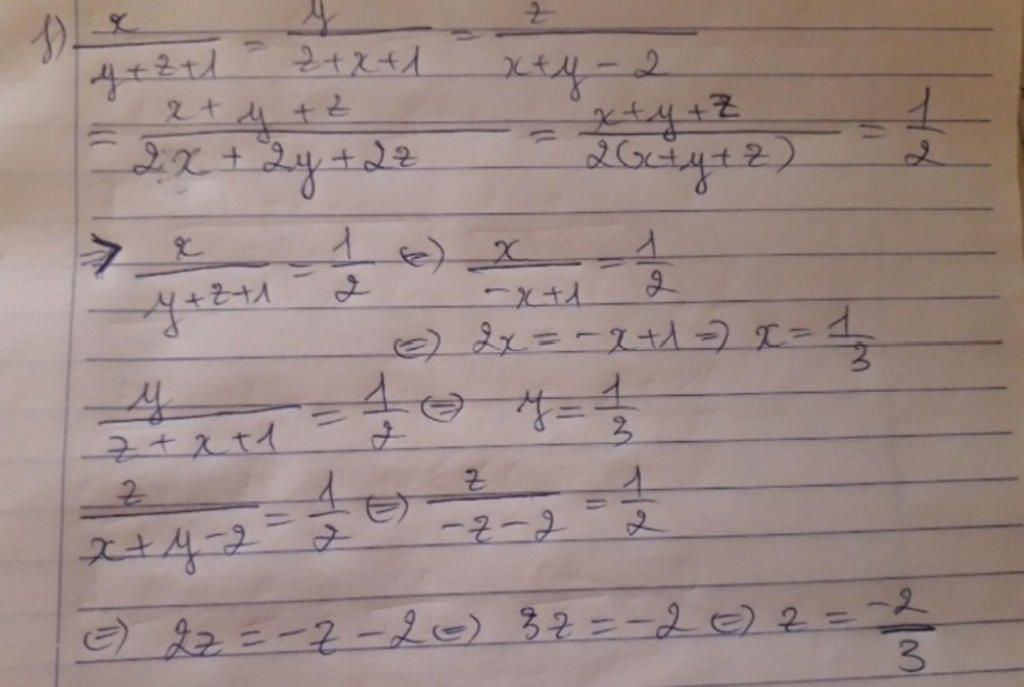 f) x/(y+z+1) = y/(z+x+1) = z/(x+y-2)
= (x+y+z)/(2x+2y+2z) = (x+y+z)/(2(x+y+z)) = 1/2
⇒ x/(y+z+1) = 1/2 ⇔ x/(-x+1) = 1/2
⇔ 2x = -x+1 ⇒ x = 1/3
y/(z+x+1) = 1/2 ⇔ y = 1/3
z/(x+y-2) = 1/2 ⇔ z/(-z-2) = 1/2
⇔ 2z = -z-2 ⇔ 3z = -2 ⇔ z = -2/3